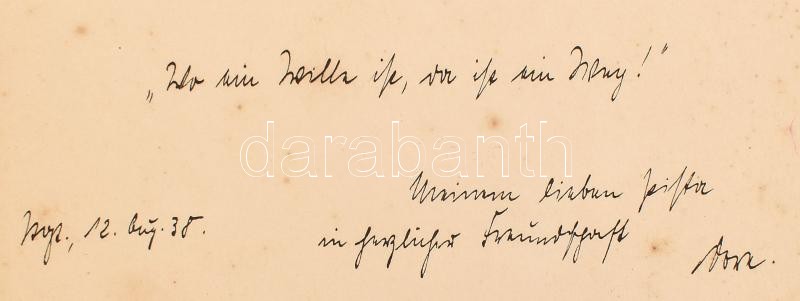 „Wo ein Wille ist, da ist ein Weg!“
darabanth
Meinem lieben Pista
12. Aug. 38.
in herzlicher Freundschaft
Dora.